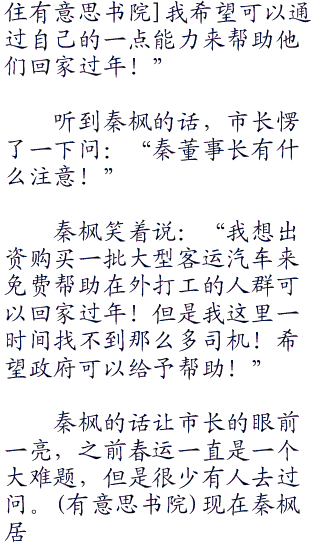 住有意思书院]我希望可以通
过自己的一点能力来帮助他
们回家过年！”
听到秦枫的话，市长愣
了一下问：“秦董事长有什
么注意！”
秦枫笑着说：“我想出
资购买一批大型客运汽车来
免费帮助在外打工的人群可
以回家过年！但是我这里一
时间找不到那么多司机！希
望政府可以给予帮助！”
秦枫的话让市长的眼前
一亮，之前春运一直是一个
大难题，但是很少有人去过
问。(有意思书院)现在秦枫
居